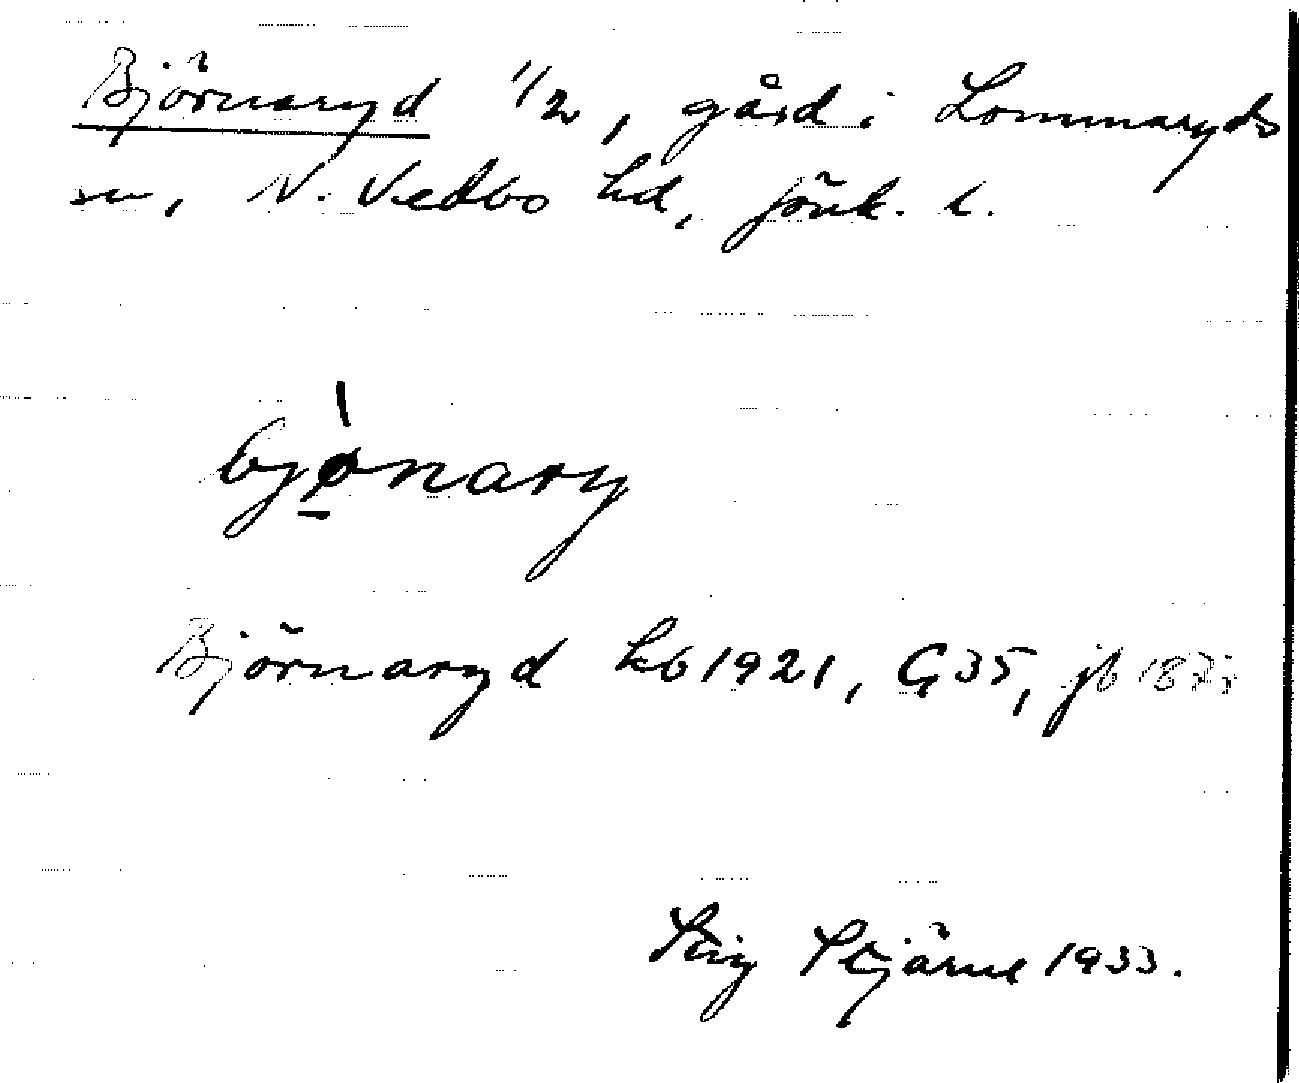 Björnaryd 1/2, gård i Lommaryds
sn, N. Vedbo hd, Jönk. l.
bjønary
Björnaryd kb 1921, G 35, jb
Stig Stjärne 1933.